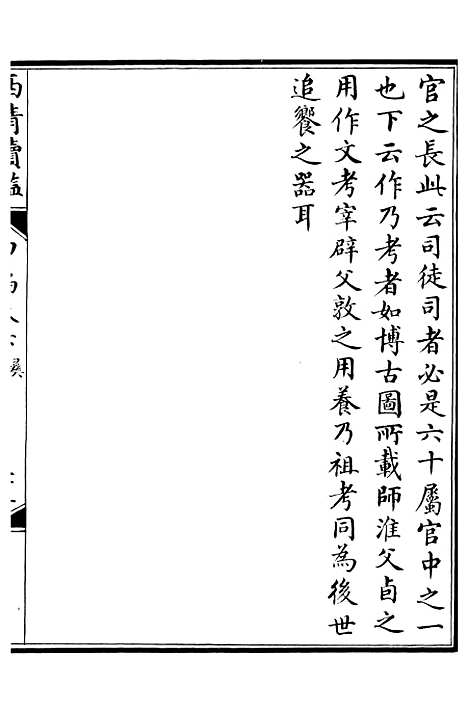 官之長此云司徒司者必是六十屬官中之一
也下云作乃考者如博古圖所載師淮父卣之
用作文考宰辟父敦之用養乃祖考同為後世
追饗之器耳
西清續鑑